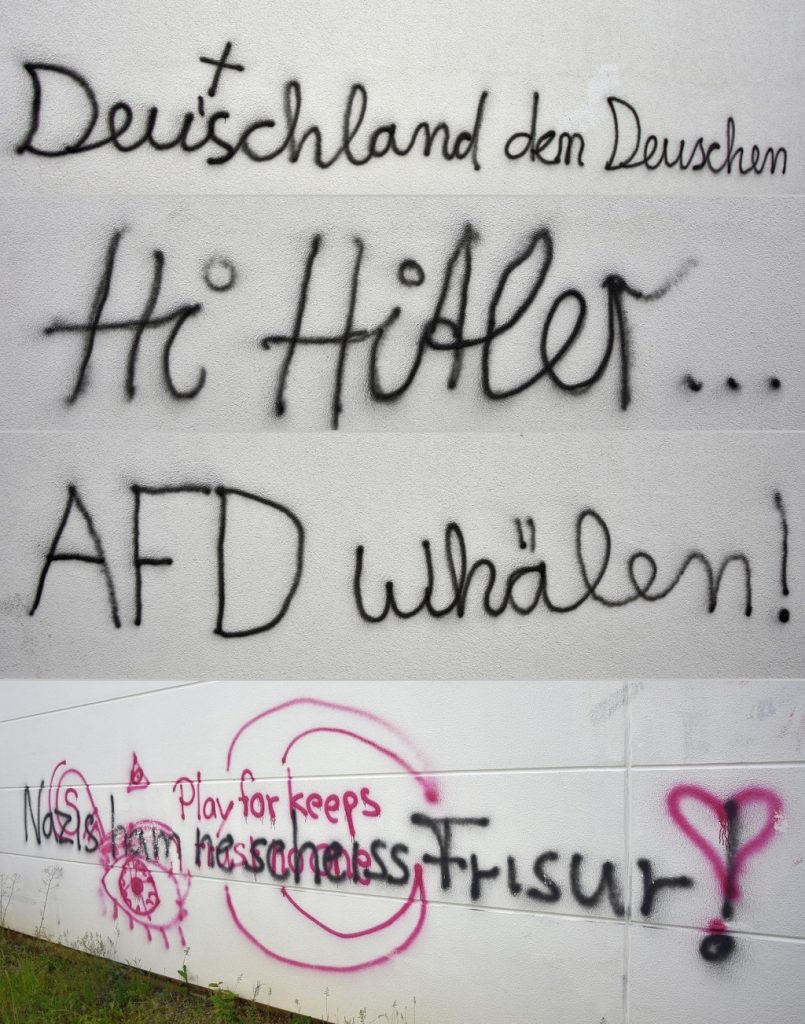 Deutschland den Deuschen
Hi Hitler...
AFD whälen!
Play for keeps
Nazis ham ne scheiss Frisur!